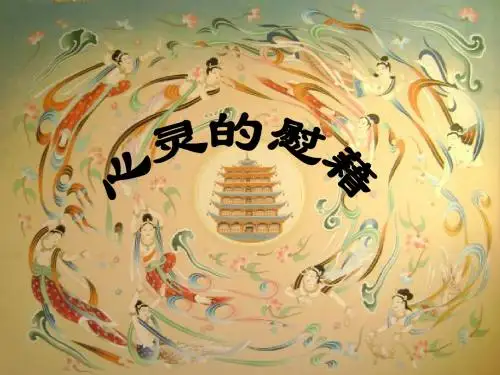 心灵的慰藉